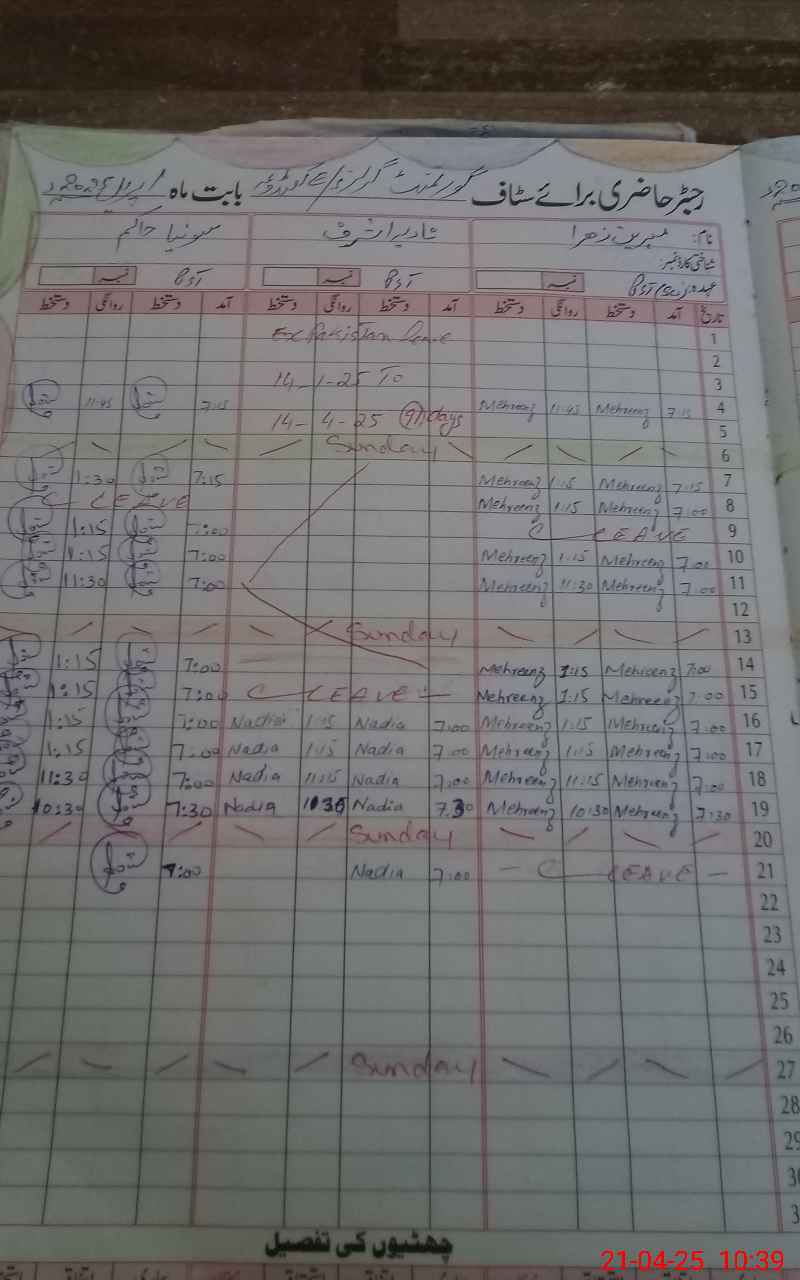 رجسٹر حاضری برائے سٹاف گورنمنٹ گرلز بابت ماہ اپریل
نام: مہرین زھرا نادیہ اشرف سونیا حاکم
شناختی کارڈ نمبر:
عہدہ: نمبر نمبر نمبر
تاریخ آمد دستخط روانگی دستخط آمد دستخط روانگی دستخط آمد دستخط روانگی دستخط
1 Ex Pakistan Leave
2
3 14-1-25 To
4 7:15 Mehreenz 11:45 Mehreenz 7:15 11:45
5 14-4-25 91 days
6 Sunday
7 7:15 Mehreenz 1:15 Mehreenz 7:15 1:30
8 7:00 Mehreenz 1:15 Mehreenz C LEAVE
9 C LEAVE 7:00 1:15
10 7:00 Mehreenz 1:15 Mehreenz 7:00 1:15
11 7:00 Mehreenz 11:30 Mehreenz 7:00 11:30
12
13 Sunday
14 7:00 Mehreenz 1:15 Mehreenz 7:00 1:15
15 7:00 Mehreenz 1:15 Mehreenz C LEAVE 7:00 1:15
16 7:00 Mehreenz 1:15 Mehreenz 7:00 Nadia 1:15 Nadia 7:00 1:15
17 7:00 Mehreenz 1:15 Mehreenz 7:00 Nadia 1:15 Nadia 7:00 1:15
18 7:00 Mehreenz 11:15 Mehreenz 7:00 Nadia 11:15 Nadia 7:00 11:30
19 7:30 Mehreenz 10:30 Mehreenz 7:30 Nadia 10:30 Nadia 7:30 10:30
20 Sunday
21 C LEAVE 7:00 Nadia 7:00
22
23
24
25
26
27 Sunday
28
29
چھٹیوں کی تفصیل
21-04-25 10:39